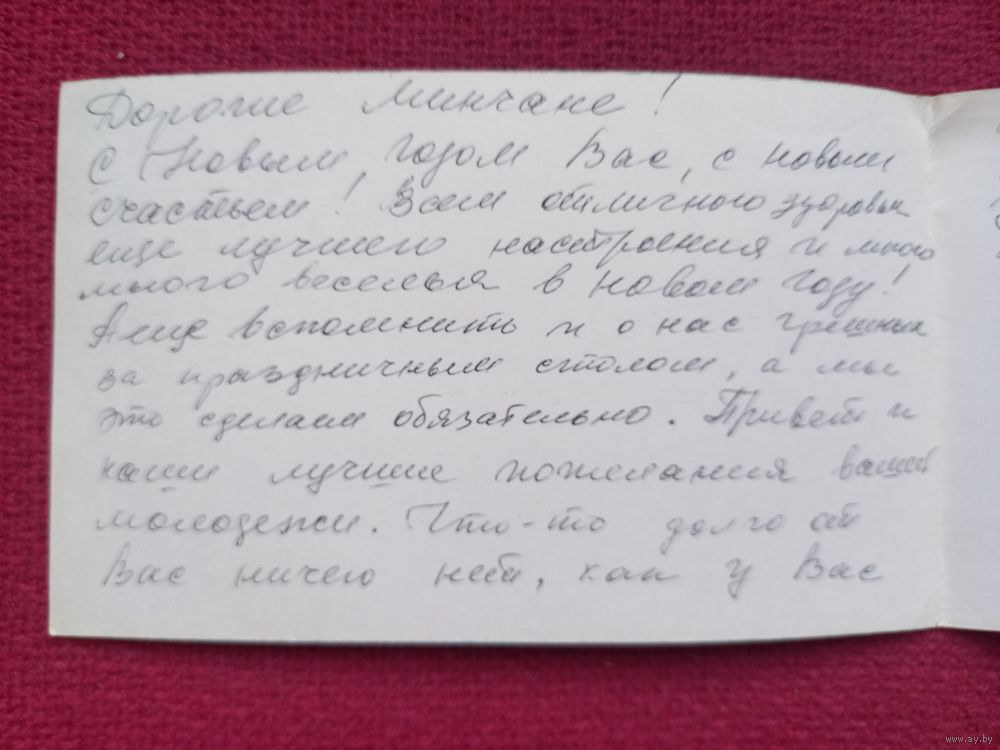 Дорогие Минчане!
С Новым годом Вас, с новым
счастьем! Всем отличного здоровья
еще лучшего настроения и много
много веселья в новом году!
вспомнить и о нас грешных
за праздничным столом, а мы
это сделаем обязательно. Привет и
наши лучшие пожелания вашей
молодежи. Что-то долго от
Вас ничего нет, как у Вас
www.ay.by